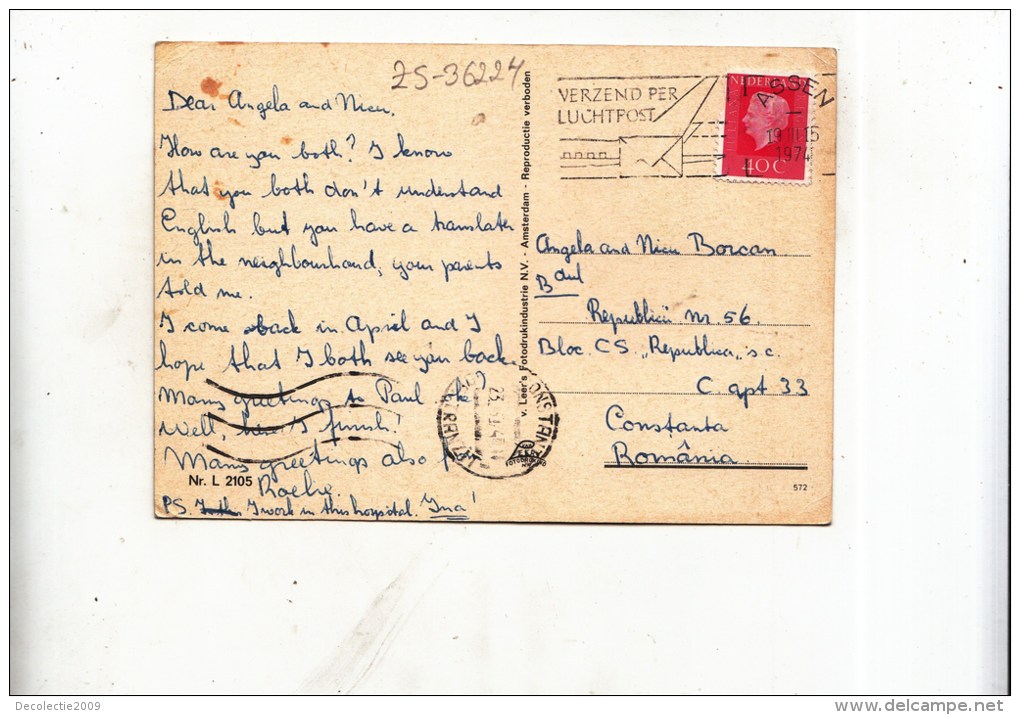 ZS-36224
Dear Angela and Nicu,
How are you both? I know
that you both don't understand
English but you have a translater
in the neighbourhood, your parents
told me.
I come back in April and I
hope that I both see you back.
Many greetings to Paul. ok?
Well, I finish!
Many greetings also f
Nr. L 2105
PS. I work in this hospital. Ina!
v. Leer's Fotodrukindustrie N.V. - Amsterdam - Reproductie verboden
VERZEND PER
LUCHTPOST
NEDERLAND
40C
ASSEN
19 III 15
1974
Angela and Nicu Borcan
Bdul
Republicii nr. 56.
Bloc. CS. „Republica„ sc.
C. apt 33
Constanta
România
572
Decolectie2009
delcampe.net